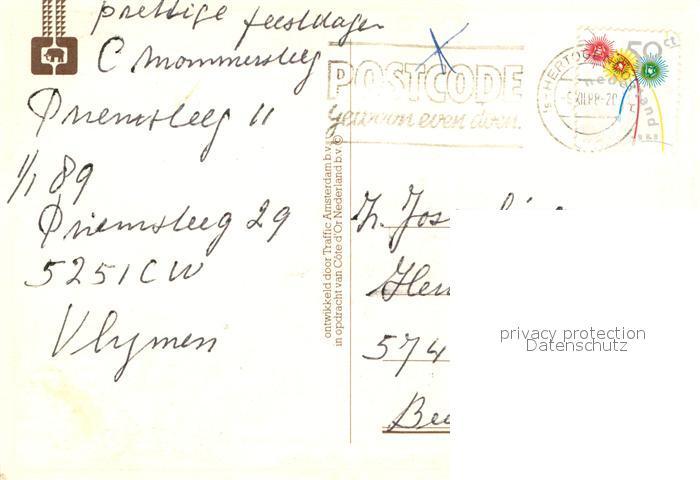 prettige feestdagen
C Mommersteeg
Priemsteeg 11
1/1 89
Priemsteeg 29
5251CW
Vlymen
POSTCODE
gewoon even doen.
's-HERTOGEN
XII.88-20
50 ct
nederland
ontwikkeld door Traffic Amsterdam b.v.
in opdracht van Côte d'Or Nederland b.v. ©
Zr. Jos
574
privacy protection
Datenschutz